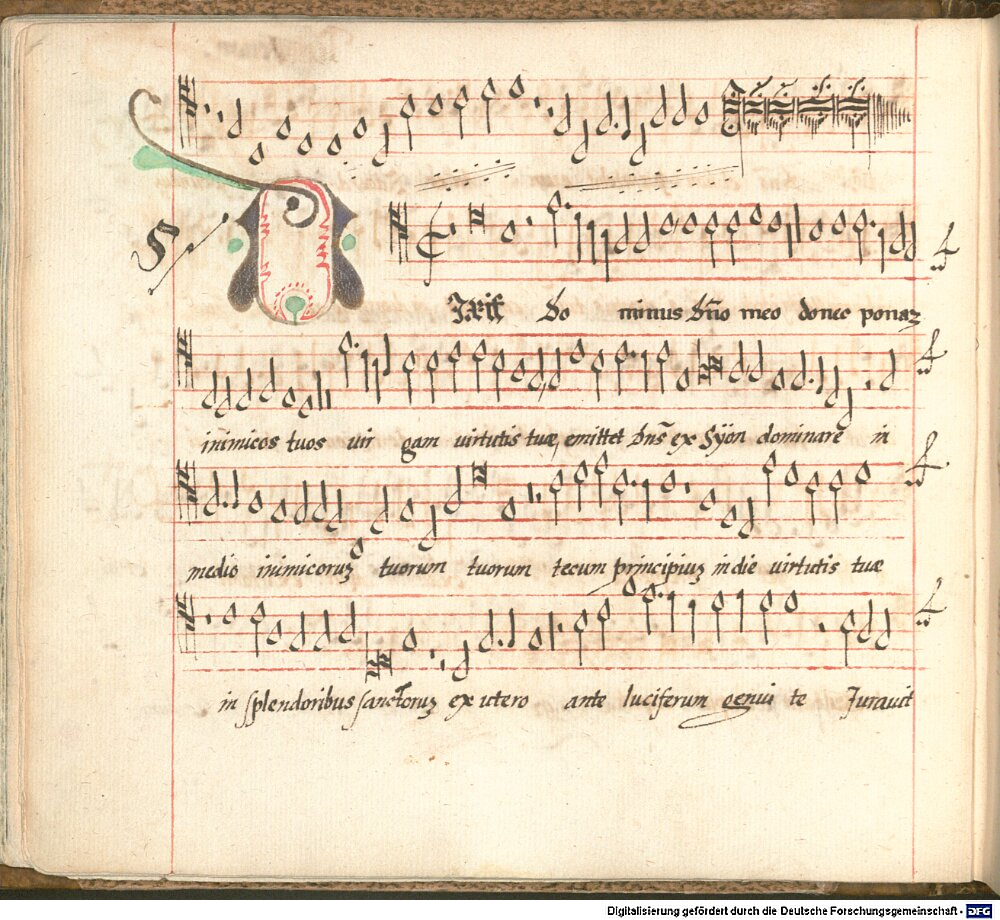 Dixit Do minus dño meo donec ponaz
inimicos tuos vir gam virtutis tuæ emittet dñs ex Syon dominare in
medio inimicoruz tuorum tuorum tecum principiuz in die virtutis tuæ
in splendoribus sanctoruz ex utero ante luciferum genui te Juravit
Digitalisierung gefördert durch die Deutsche Forschungsgemeinschaft - DFG